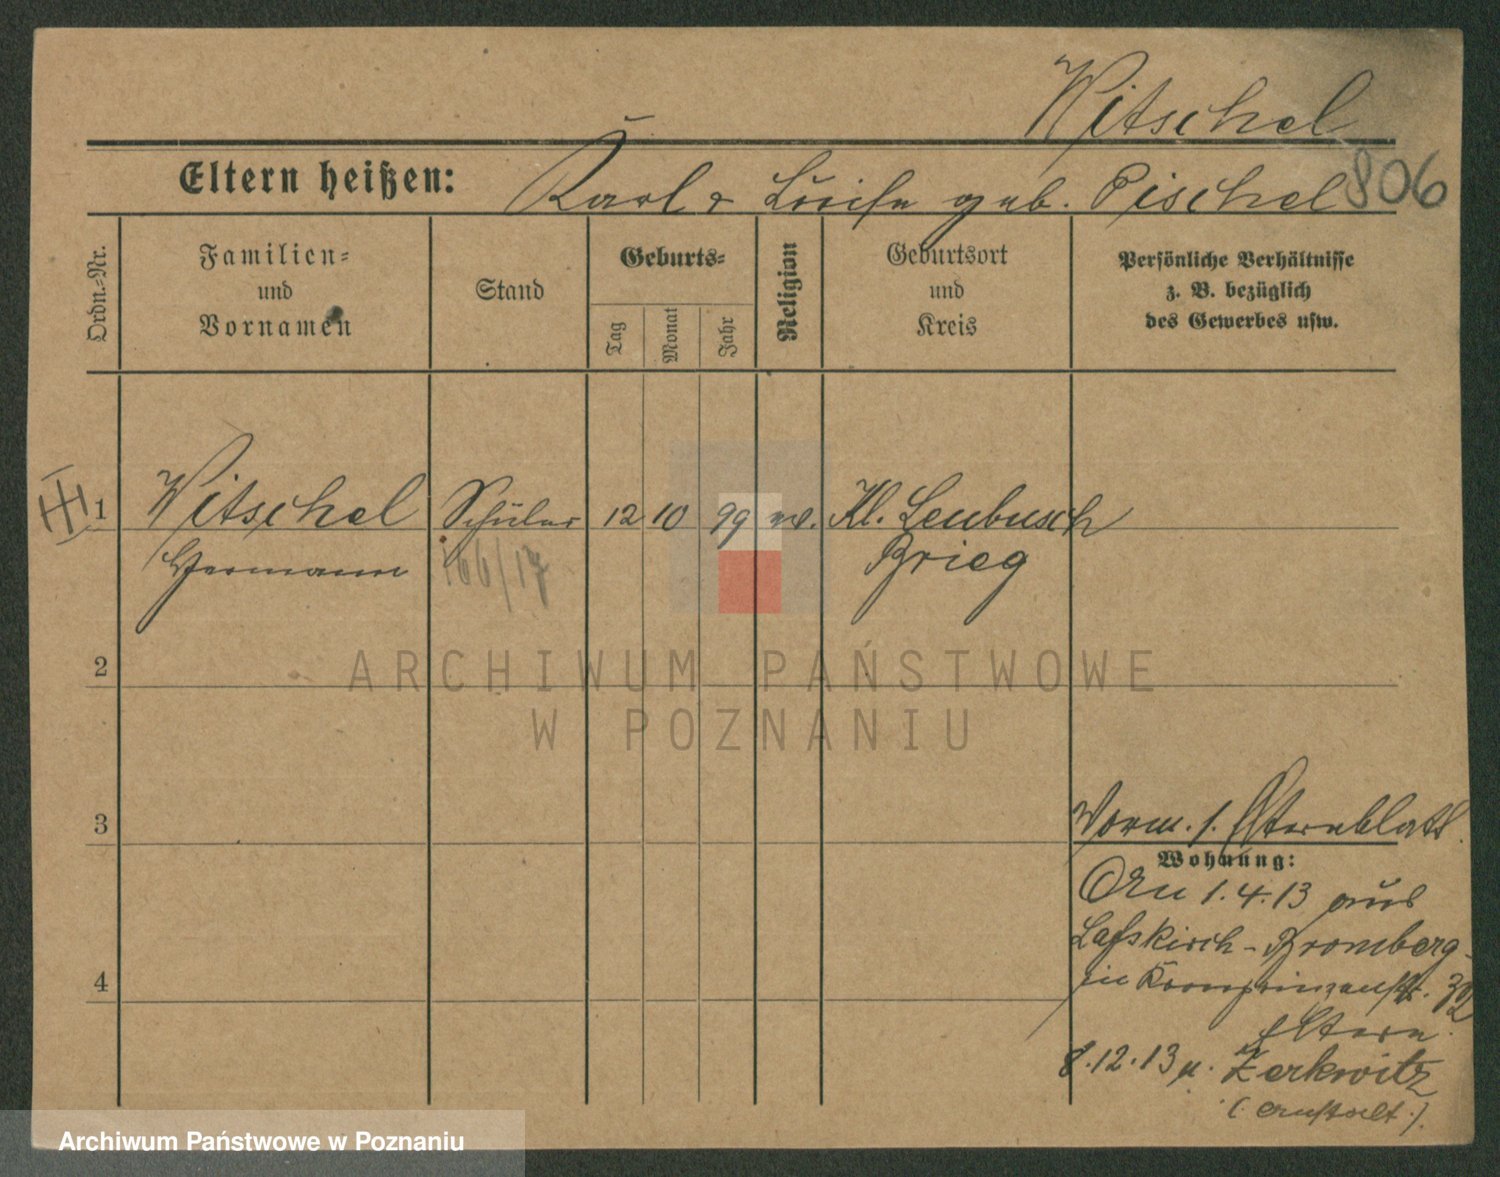 Witschel
806
Eltern heißen: Karl & Luise geb. Pischel
Ordn.-Nr.
Familien- und Vornamen
Stand
Geburts-
Tag
Monat
Jahr
Religion
Geburtsort und Kreis
Persönliche Verhältnisse
z. B. bezüglich
des Gewerbes usw.
1 Witschel Schüler 12 10 99 ev. Kl. Leubusch
Hermann 166/17 Brieg
2
ARCHIWUM PAŃSTWOWE
W POZNANIU
3
Vorm. s. Elternblatt.
Wohnung:
An 1.4.13 aus
Bromberg
in Kronprinzenstr. 32
Eltern.
8.12.13 n. Zerkwitz
(Anstalt.).
4
Archiwum Państwowe w Poznaniu